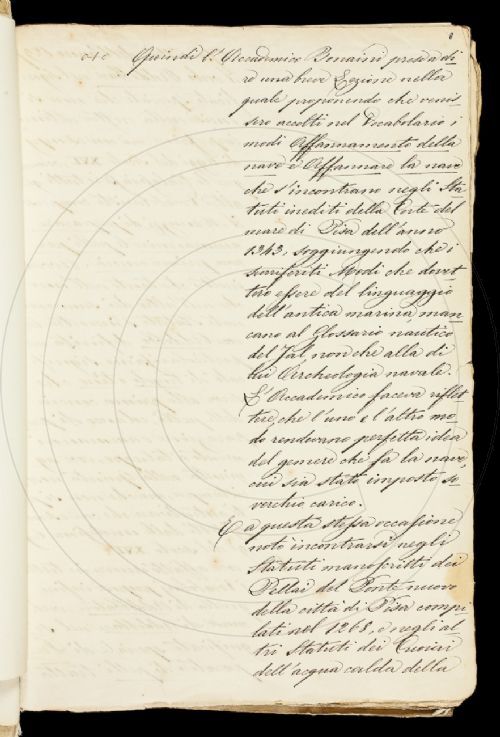 8
Quindi l'Accademico Bonaini prese a di-
re una breve Lezione nella
quale proponendo che venis-
sero accolti nel Vocabolario i
modi Affannamento della
nave e Affannare la nave
che s'incontrano negli Sta-
tuti inediti della Corte del
mare di Pisa dell'anno
1343, soggiungendo che i
suriferiti Modi che dovet-
tero essere del linguaggio
dell'antica marina, man-
cano al Glossario nautico
del Jal, non che alla di
lui Archeologia navale.
L'Accademico faceva riflet-
tere, che l'uno e l'altro mo-
do rendevano perfetta idea
del gemere che fa la nave,
cui sia stato imposto so-
verchio carico.
E a questa stessa occasione
notò incontrarsi negli
Statuti manoscritti dei
Pellai del Ponte nuovo
della città di Pisa compi-
lati nel 1268, e negli al
tri Statuti dei Cuoiai
dell'acqua calda della